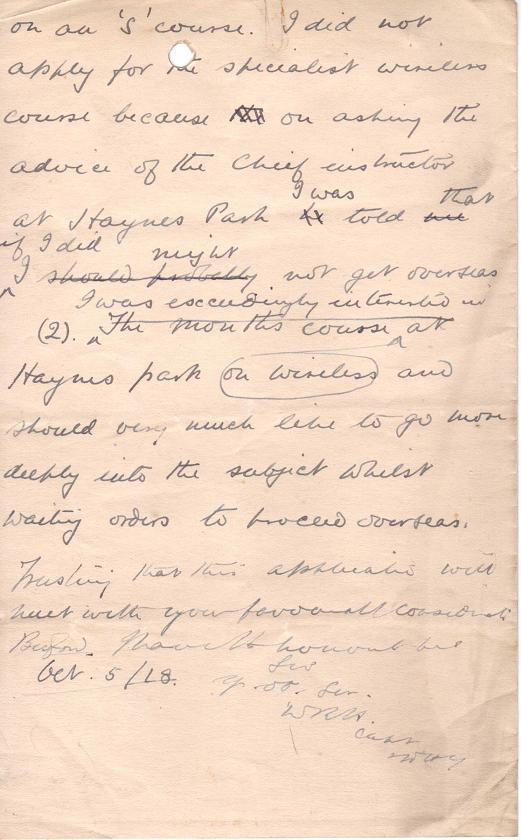 on an 'S' course. I did not
apply for the specialist wireless
course because on asking the
advice of the Chief instructor
I was that
at Haynes Park told me
if I did might
I should probably not get overseas
I was exceedingly interested in
(2). The months course at
Haynes park on wireless and
should very much like to go more
deeply into the subject whilst
waiting orders to proceed overseas.
Trusting that this application will
meet with your favourable consideration
Bedford. I have the honour to be
Oct. 5/18. Sir
Yr. Ob. Ser.
W
Capt